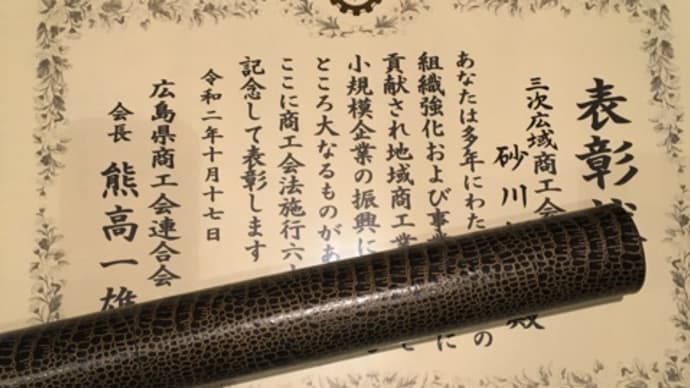 表彰
三次広域商工会
砂川 殿
あなたは多年にわた の
組織強化および事業 に
貢献され地域商工業 と
小規模企業の振興に
ところ大なるものがあ
ここに商工会法施行六
記念して表彰します
令和二年十月十七日
広島県商工会連合会
会長 熊高一雄